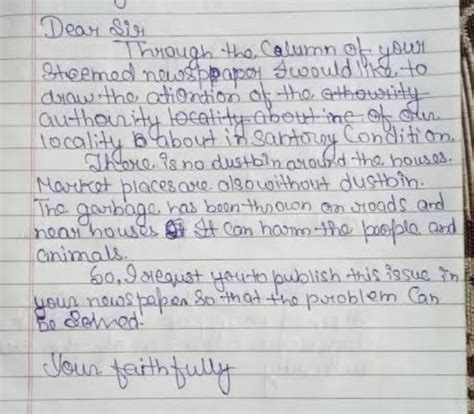 Dear Sir
Through the Column of your
Steemed newspaper I would like to
draw the atiention of the athourity
authourity locality about inc of our
locality is about in Santoray Condition.
There is no dustbin around the houses.
Market places are also without dustbin.
The garbage has been thrown on roads and
near houses It can harm the poople and
animals.
So, I requst you to publish this issue in
your newspaper So that the problem Can
be Solved.
Your faithfully